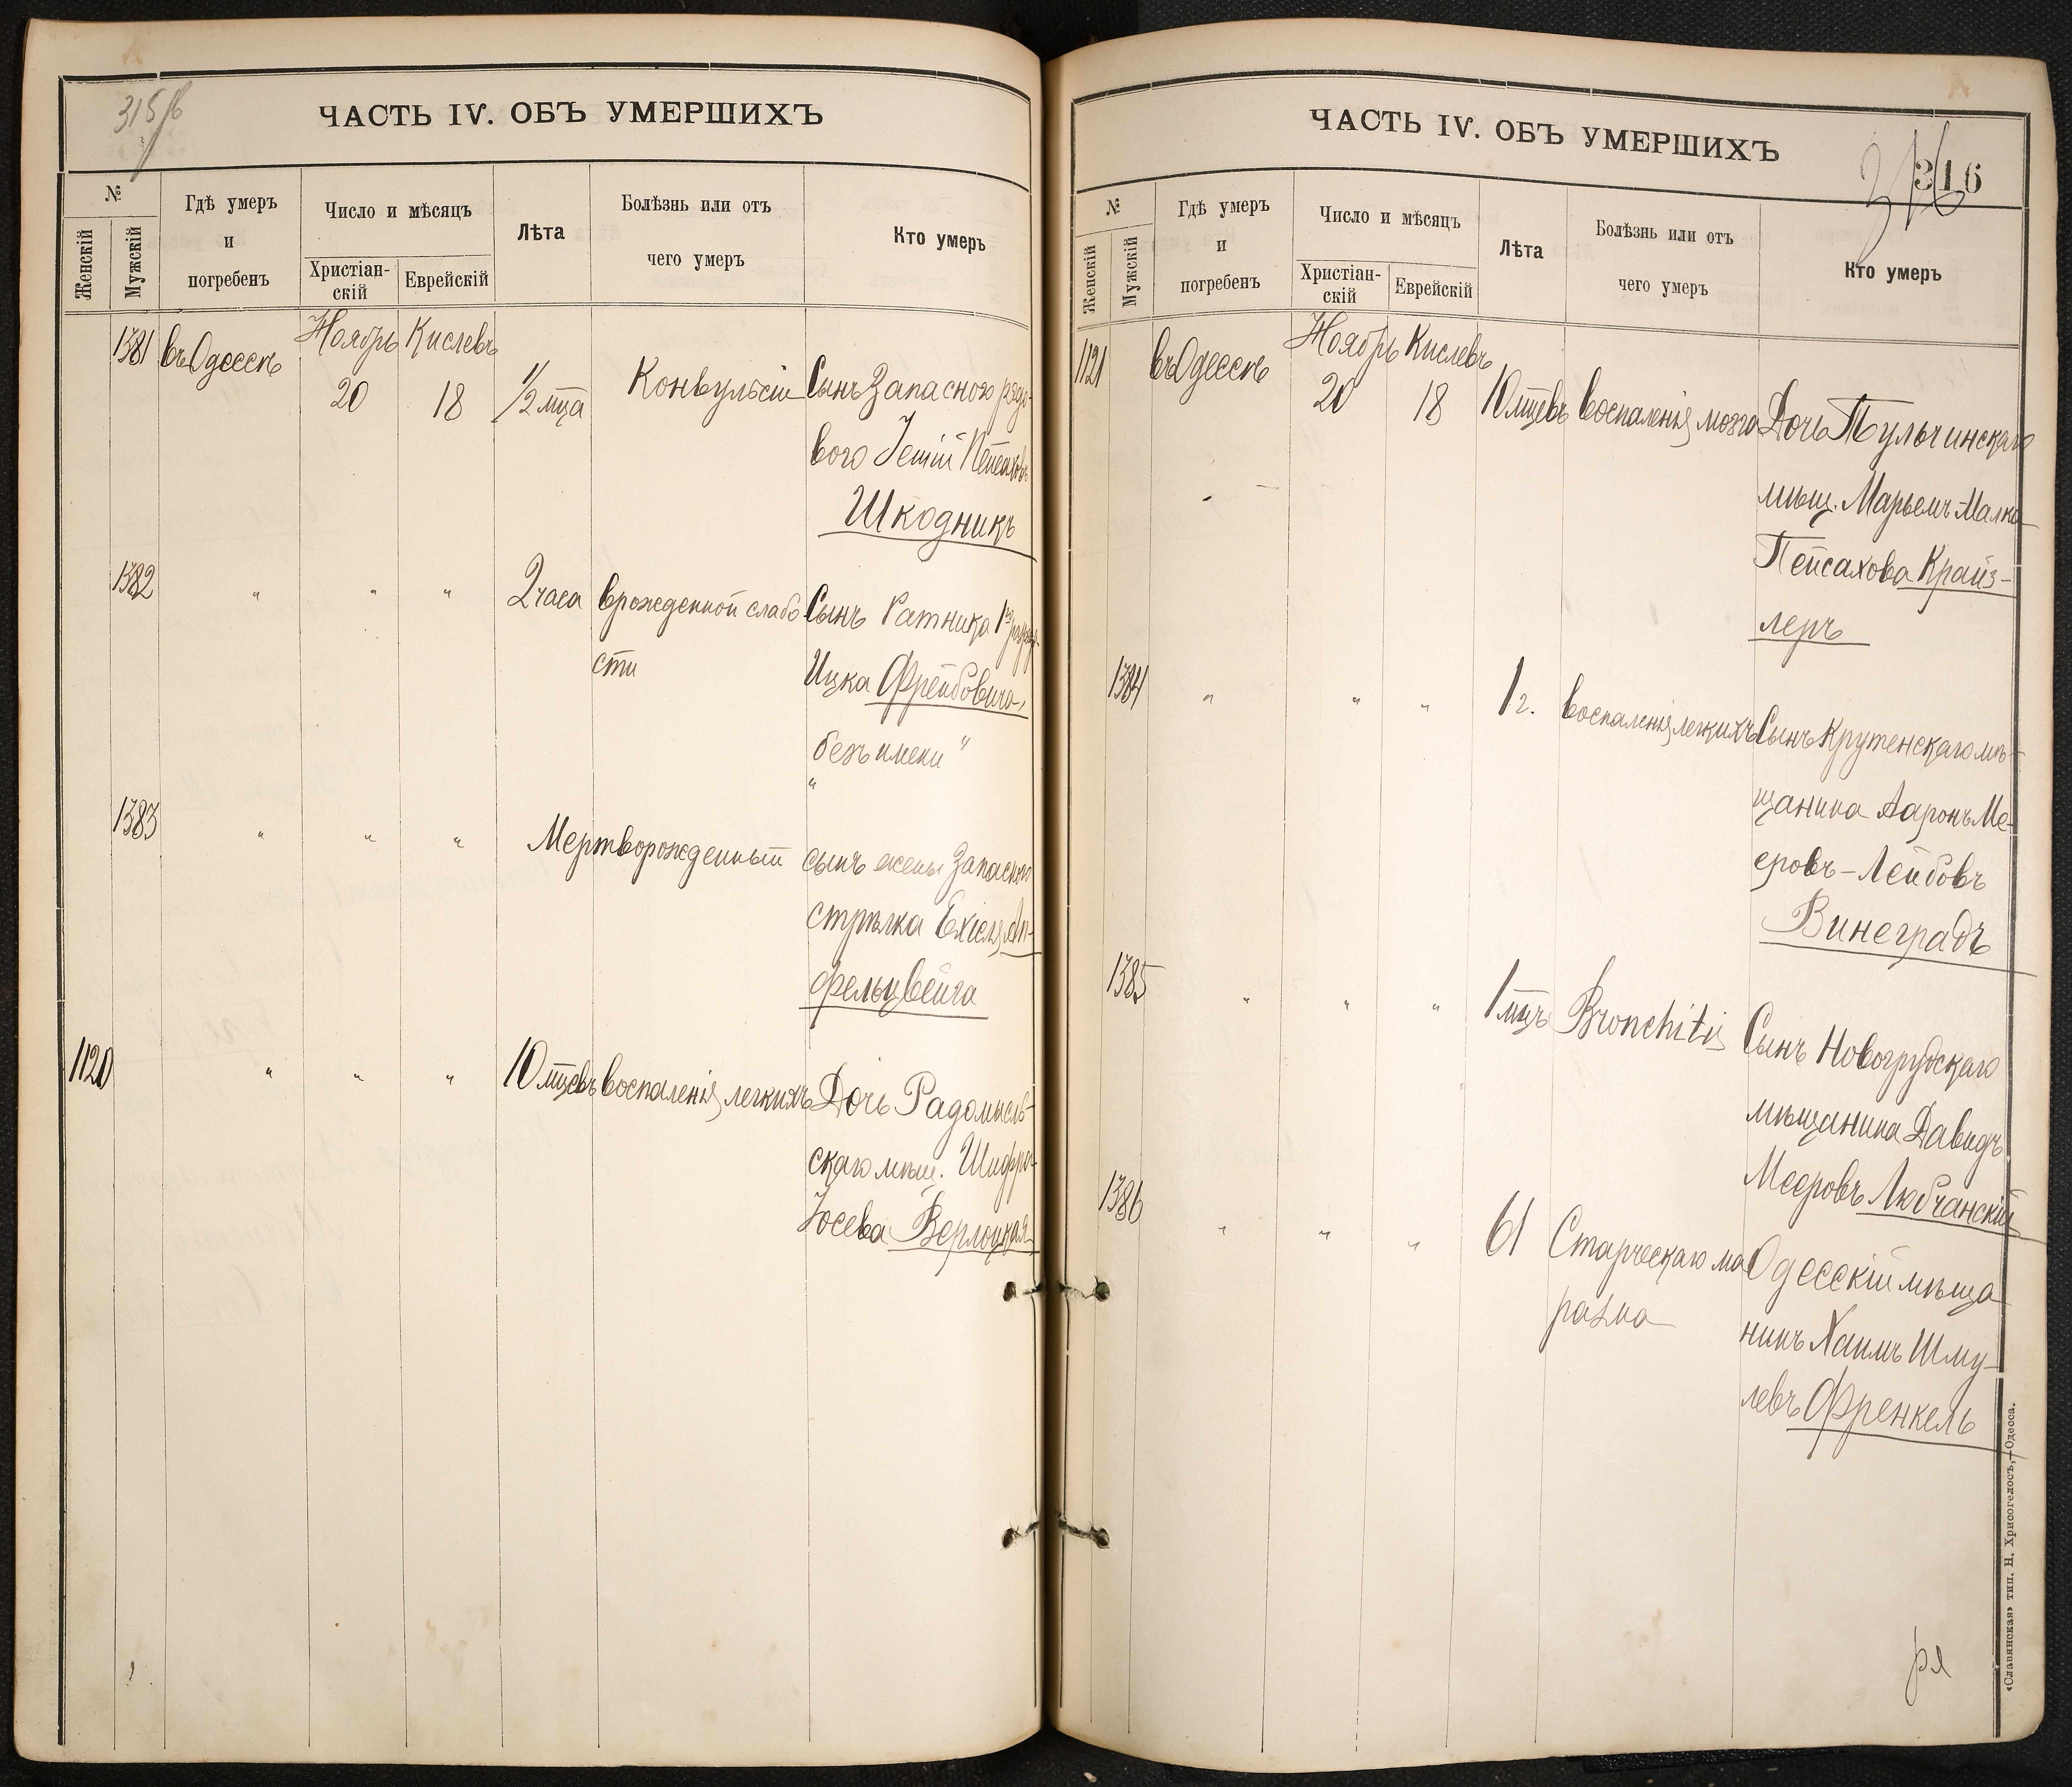 315/б
ЧАСТЬ IV. ОБЪ УМЕРШИХЪ
№
Женскій
Мужскій
Гдѣ умеръ
и
погребенъ
Число и мѣсяцъ
Христіан-
скій
Еврейскій
Лѣта
Болѣзнь или отъ
чего умеръ
Кто умеръ
1381 въ Одессѣ Ноябрь Кислевъ
20 18 1/2 мца Конвульсіи Сынъ Запасного рядо-
вого Пейсаховъ
Шкодникъ
1382 " " " 2 часа врожденной слабо- Сынъ Ратника 1го разряд.
сти Ицка Фрейбовича,
безъ имени"
"
1383 " " " Мертворожденный сынъ жены Запасного
стрѣлка Ехіеля Ап-
фельцвейга
1120 " " " 10 мцевъ воспаленія легкихъ Дочь Радомысль-
скаго мѣщ. Шифра
Іосева Верлоцкая
316
ЧАСТЬ IV. ОБЪ УМЕРШИХЪ
316
№
Женскій
Мужскій
Гдѣ умеръ
и
погребенъ
Число и мѣсяцъ
Христіан-
скій
Еврейскій
Лѣта
Болѣзнь или отъ
чего умеръ
Кто умеръ
1121 въ Одессѣ Ноябрь Кислевъ
20 18 10 мцевъ воспаленія мозга Дочь Тульчинскаго
мѣщ. Марьемъ-Малка
Пейсахова Крайз-
леръ
1384 " " " 1 г. воспаленія легкихъ Сынъ Крутенскаго мѣ-
щанина Ааронъ Ме-
еровъ-Лейбовъ
Винеградъ
1385 " " " 1 мцъ Bronchitis Сынъ Новогрудскаго
мѣщанина Давидъ
Мееровъ Любчанскій
1386 " " " 61 Старческаго ма- Одесскій мѣща-
разма нинъ Хаимъ Шму-
левъ Френкель
«Славянская» тип. Н. Хрисогелосъ,—Одесса.